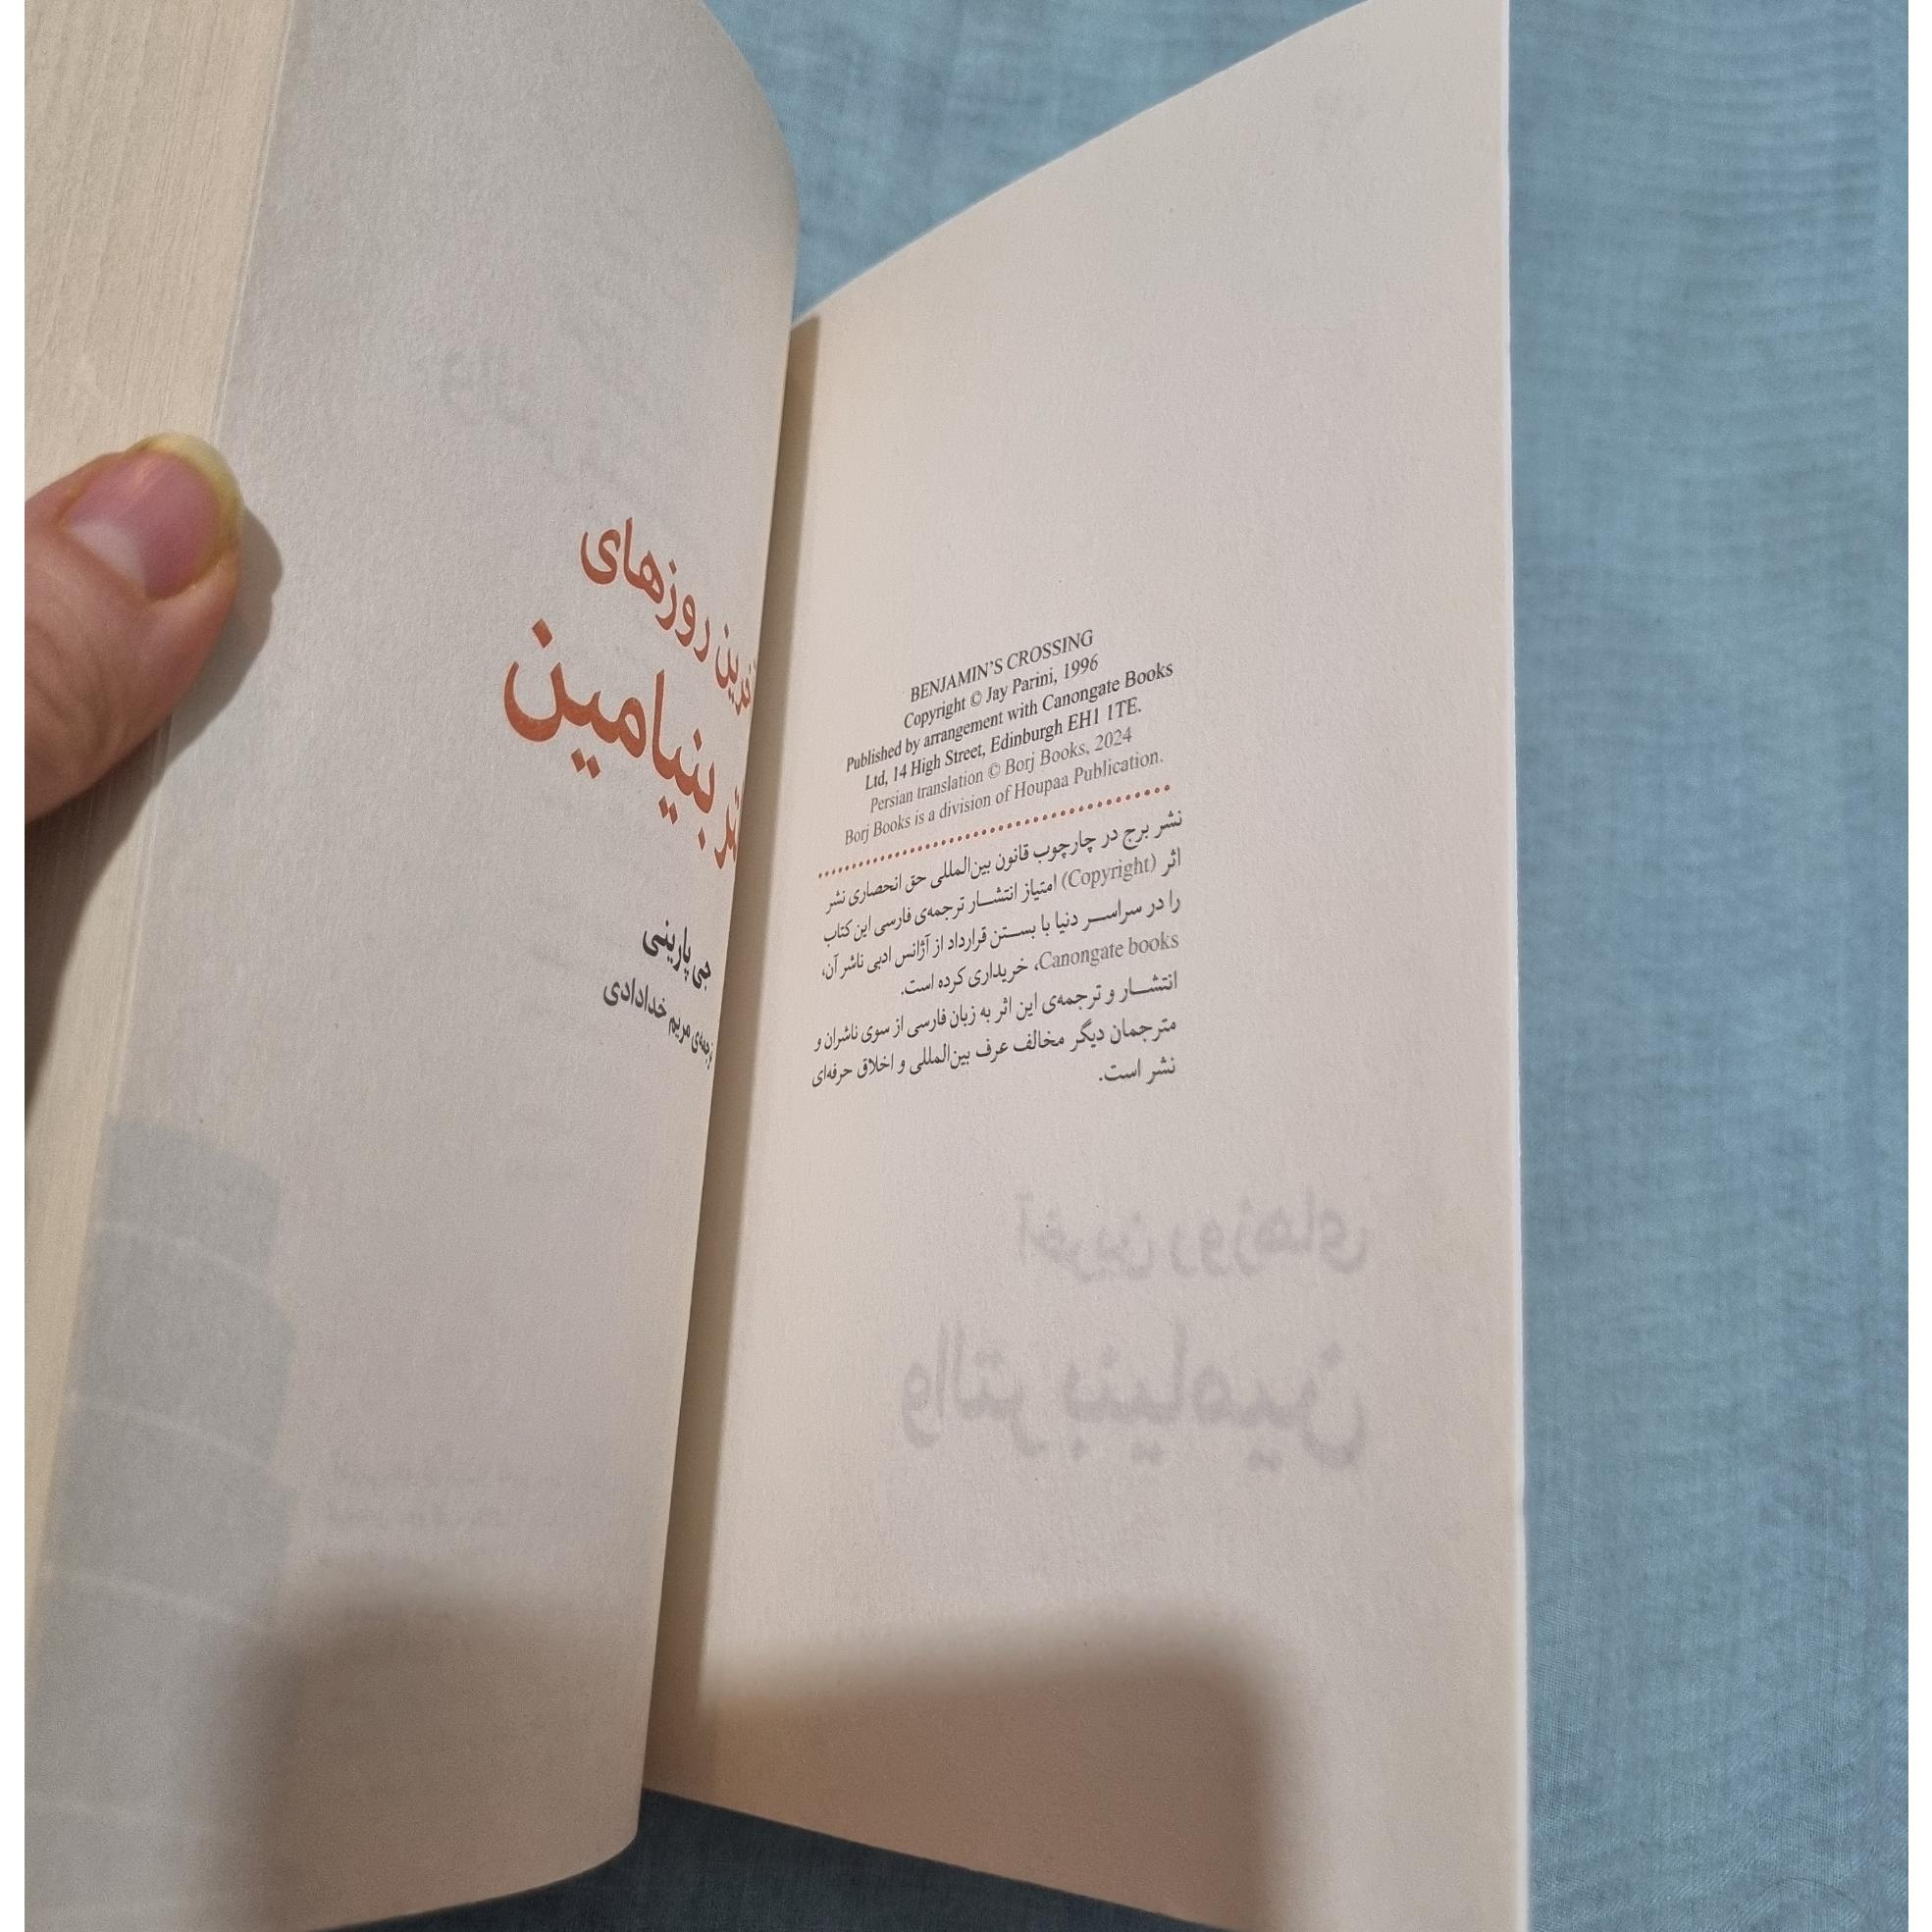 BENJAMIN'S CROSSING
Copyright © Jay Parini, 1996
Published by arrangement with Canongate Books
Ltd, 14 High Street, Edinburgh EH1 1TE.
Persian translation © Borj Books, 2024
Borj Books is a division of Houpaa Publication.
نشر برج در چارچوب قانون بین‌المللی حق انحصاری نشر
اثر (Copyright) امتیاز انتشار ترجمه‌ی فارسی این کتاب
را در سراسر دنیا با بستن قرارداد از آژانس ادبی ناشر آن،
Canongate books، خریداری کرده است.
انتشار و ترجمه‌ی این اثر به زبان فارسی از سوی ناشران و
مترجمان دیگر مخالف عرف بین‌المللی و اخلاق حرفه‌ای
نشر است.
آخرین روزهای
والتر بنیامین
روزهای
بنیامین
جی پارینی
مریم خدادادی